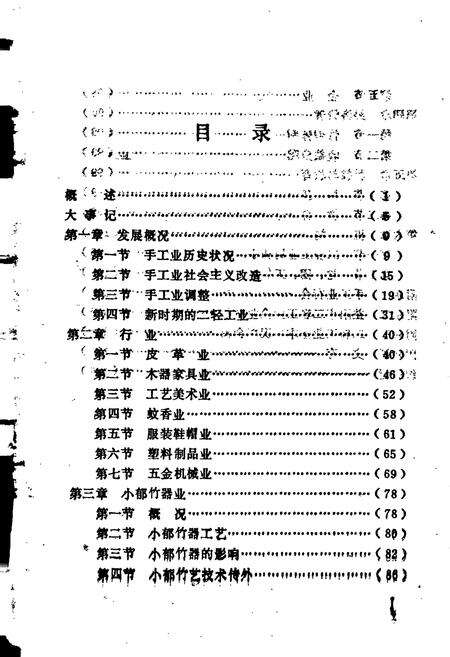 目 录
概 述………………………………( 1 )
大事记………………………………( 6 )
第一章 发展概况………………………( 9 )
第一节 手工业历史状况………………( 9 )
第二节 手工业社会主义改造…………( 15 )
第三节 手工业调整…………………( 19 )
第四节 新时期的二轻工业……………( 31 )
第二章 行 业………………………( 40 )
第一节 皮 革 业…………………( 40 )
第二节 木器家具业…………………( 46 )
第三节 工艺美术业…………………( 52 )
第四节 蚊香业………………………( 58 )
第五节 服装鞋帽业…………………( 61 )
第六节 塑料制品业…………………( 65 )
第七节 五金机械业…………………( 69 )
第三章 小郁竹器业…………………( 78 )
第一节 概 况………………………( 78 )
第二节 小郁竹器工艺………………( 80 )
第三节 小郁竹器的影响……………( 82 )
第四节 小郁竹艺技术传外…………( 86 )